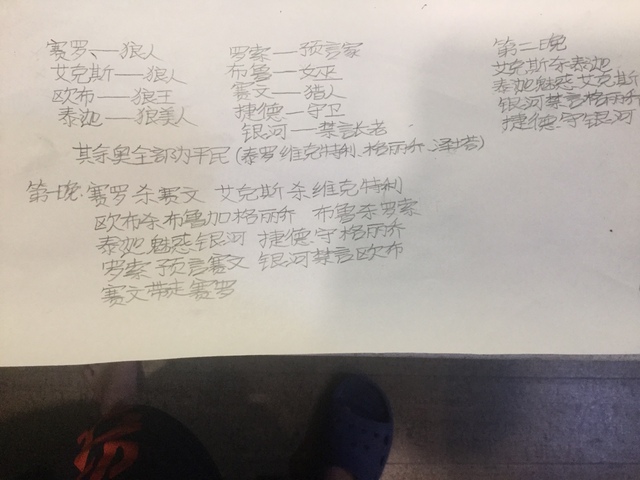 赛罗——狼人
艾克斯——狼人
欧布——狼王
泰迦——狼美人
罗索——预言家
布鲁——女巫
赛文——猎人
捷德——守卫
银河——禁言长老
其余奥全部为平民(泰罗、维克特利、格丽乔、泽塔)
第一晚:赛罗杀赛文 艾克斯杀维克特利
欧布杀布鲁加格丽乔 布鲁杀罗索
泰迦魅惑银河 捷德守格丽乔
罗索预言赛文 银河禁言欧布
赛文带走赛罗
第二晚
艾克斯杀泰迦
泰迦魅惑艾克斯
银河禁言格丽乔
捷德守银河